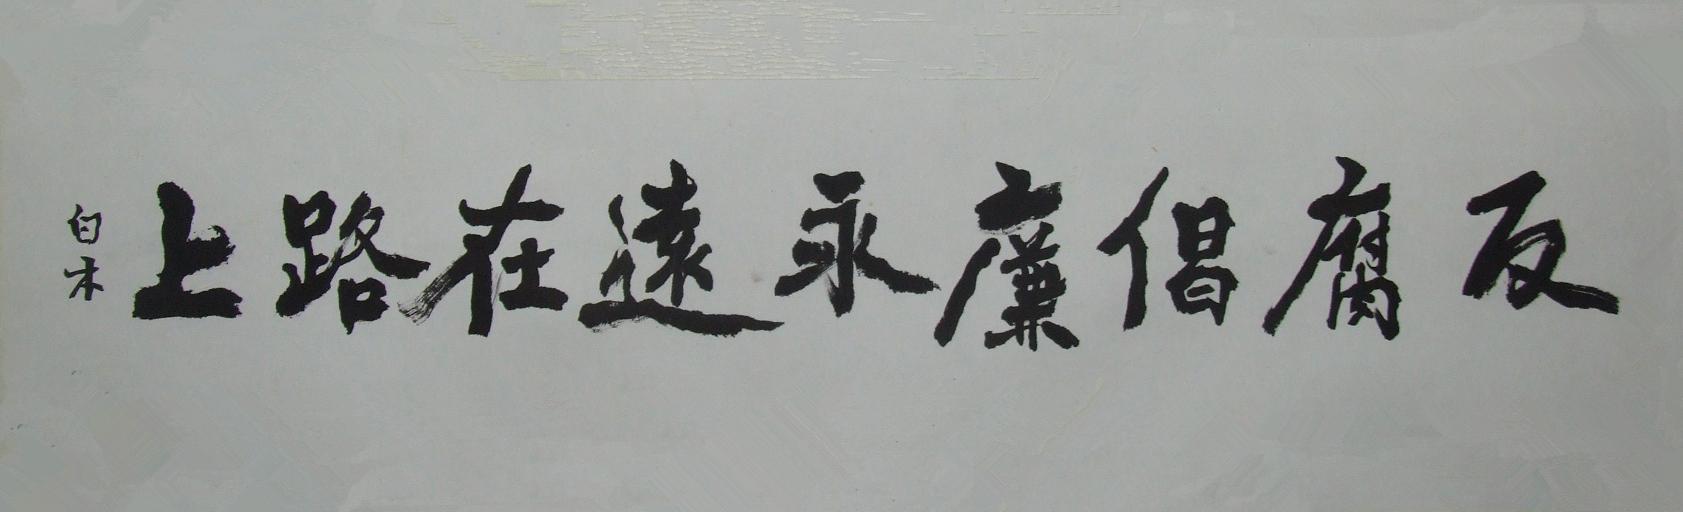 反腐倡廉永遠在路上
白木